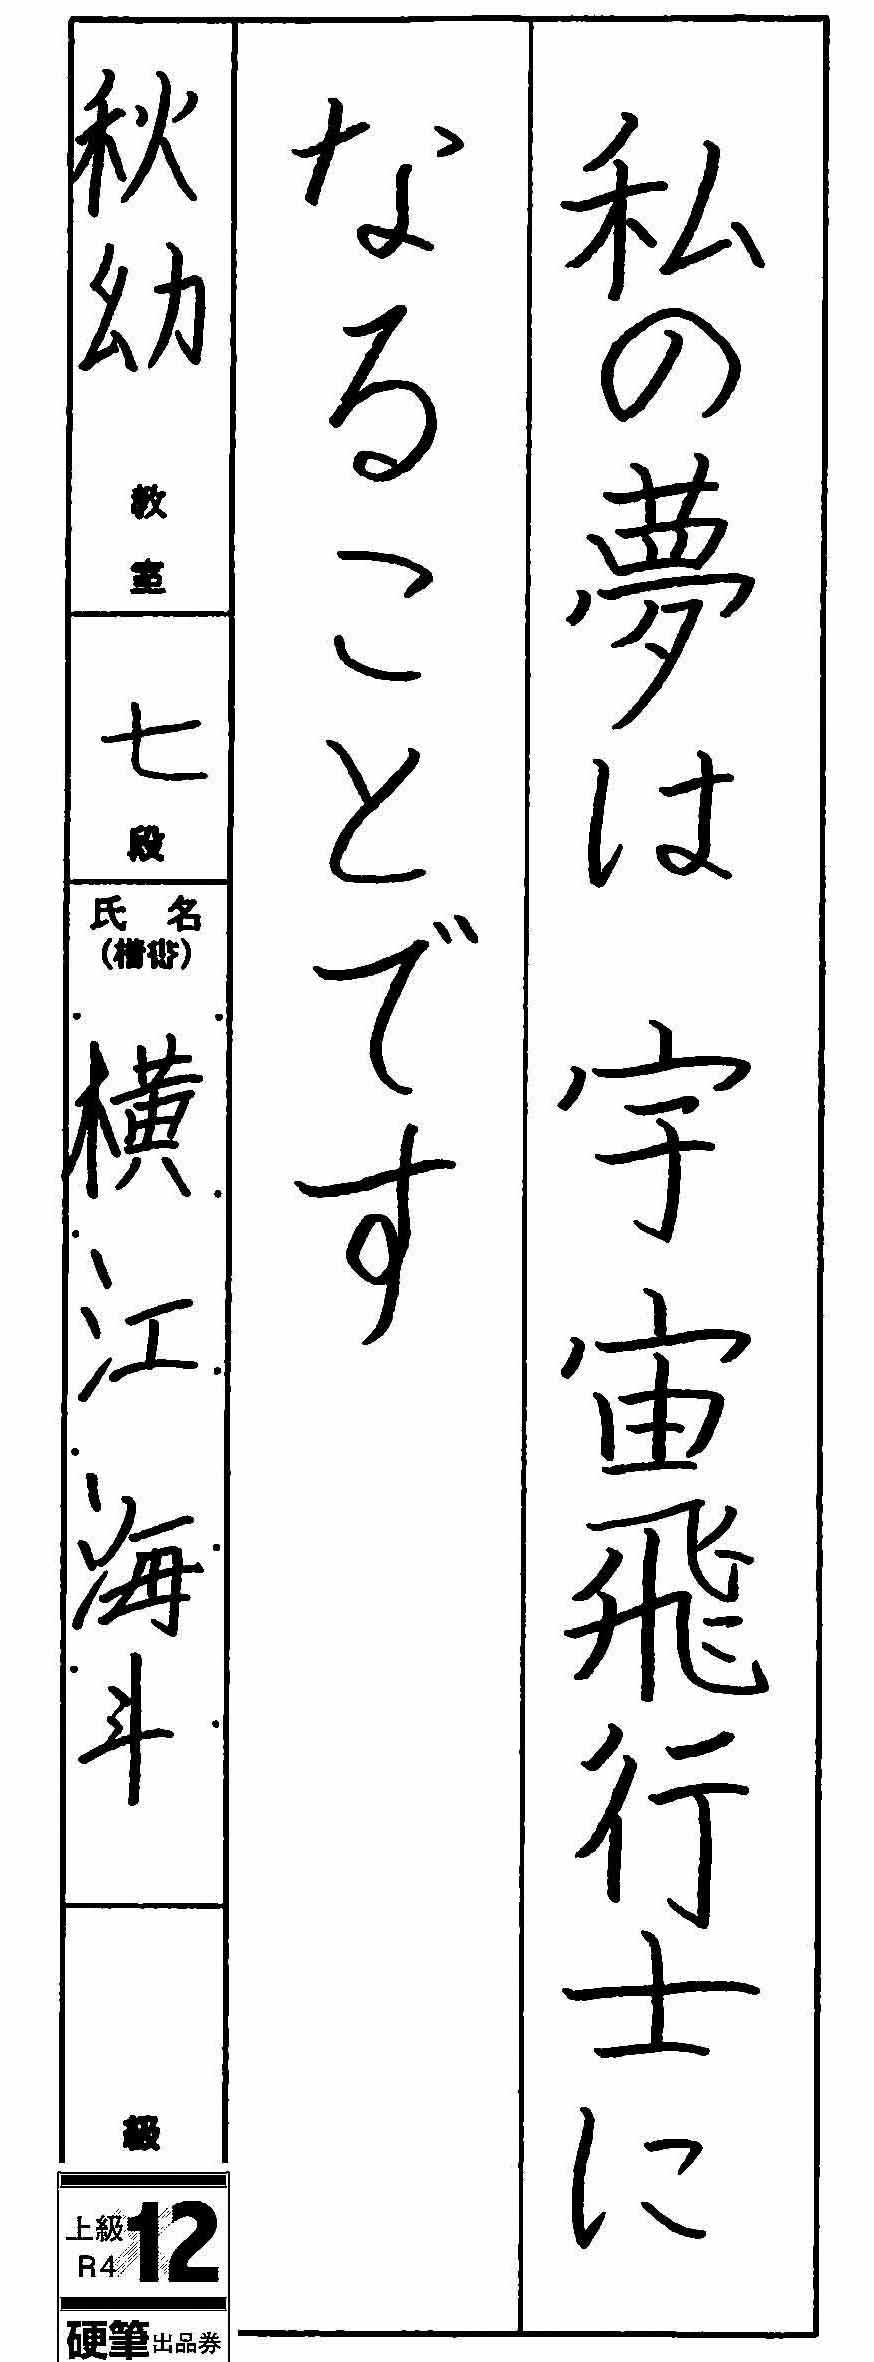 私の夢は宇宙飛行士に
なることです
秋幼教室
七段
氏名
(楷術)
横江海斗
級
上級
R4
12
硬筆出品券